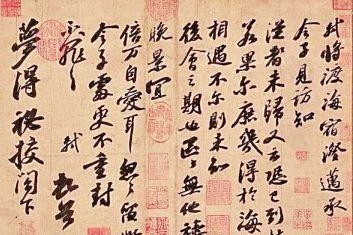 軾將渡海宿澄邁承
令子見訪知
從者未歸又云恐已到桂
若果爾庶幾得於海
相遇不爾則未知
後會之期也區區無他禱
晚景宜
倍萬自愛耳匆匆留此
令子處更不重封
不罪不罪
軾 頓首
夢得秘校閣下